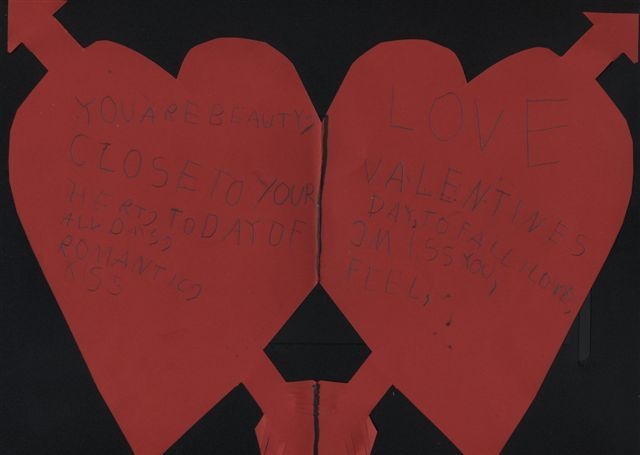 YOU ARE BEAUTY,
CLOSE TO YOUR
HERTS, TODAY OF
ALL DAYS,
ROMANTICS
KISS
LOVE
VALENTINES
DAY, TO FALL ILOVE,
I MISS YOU,
FEEL,